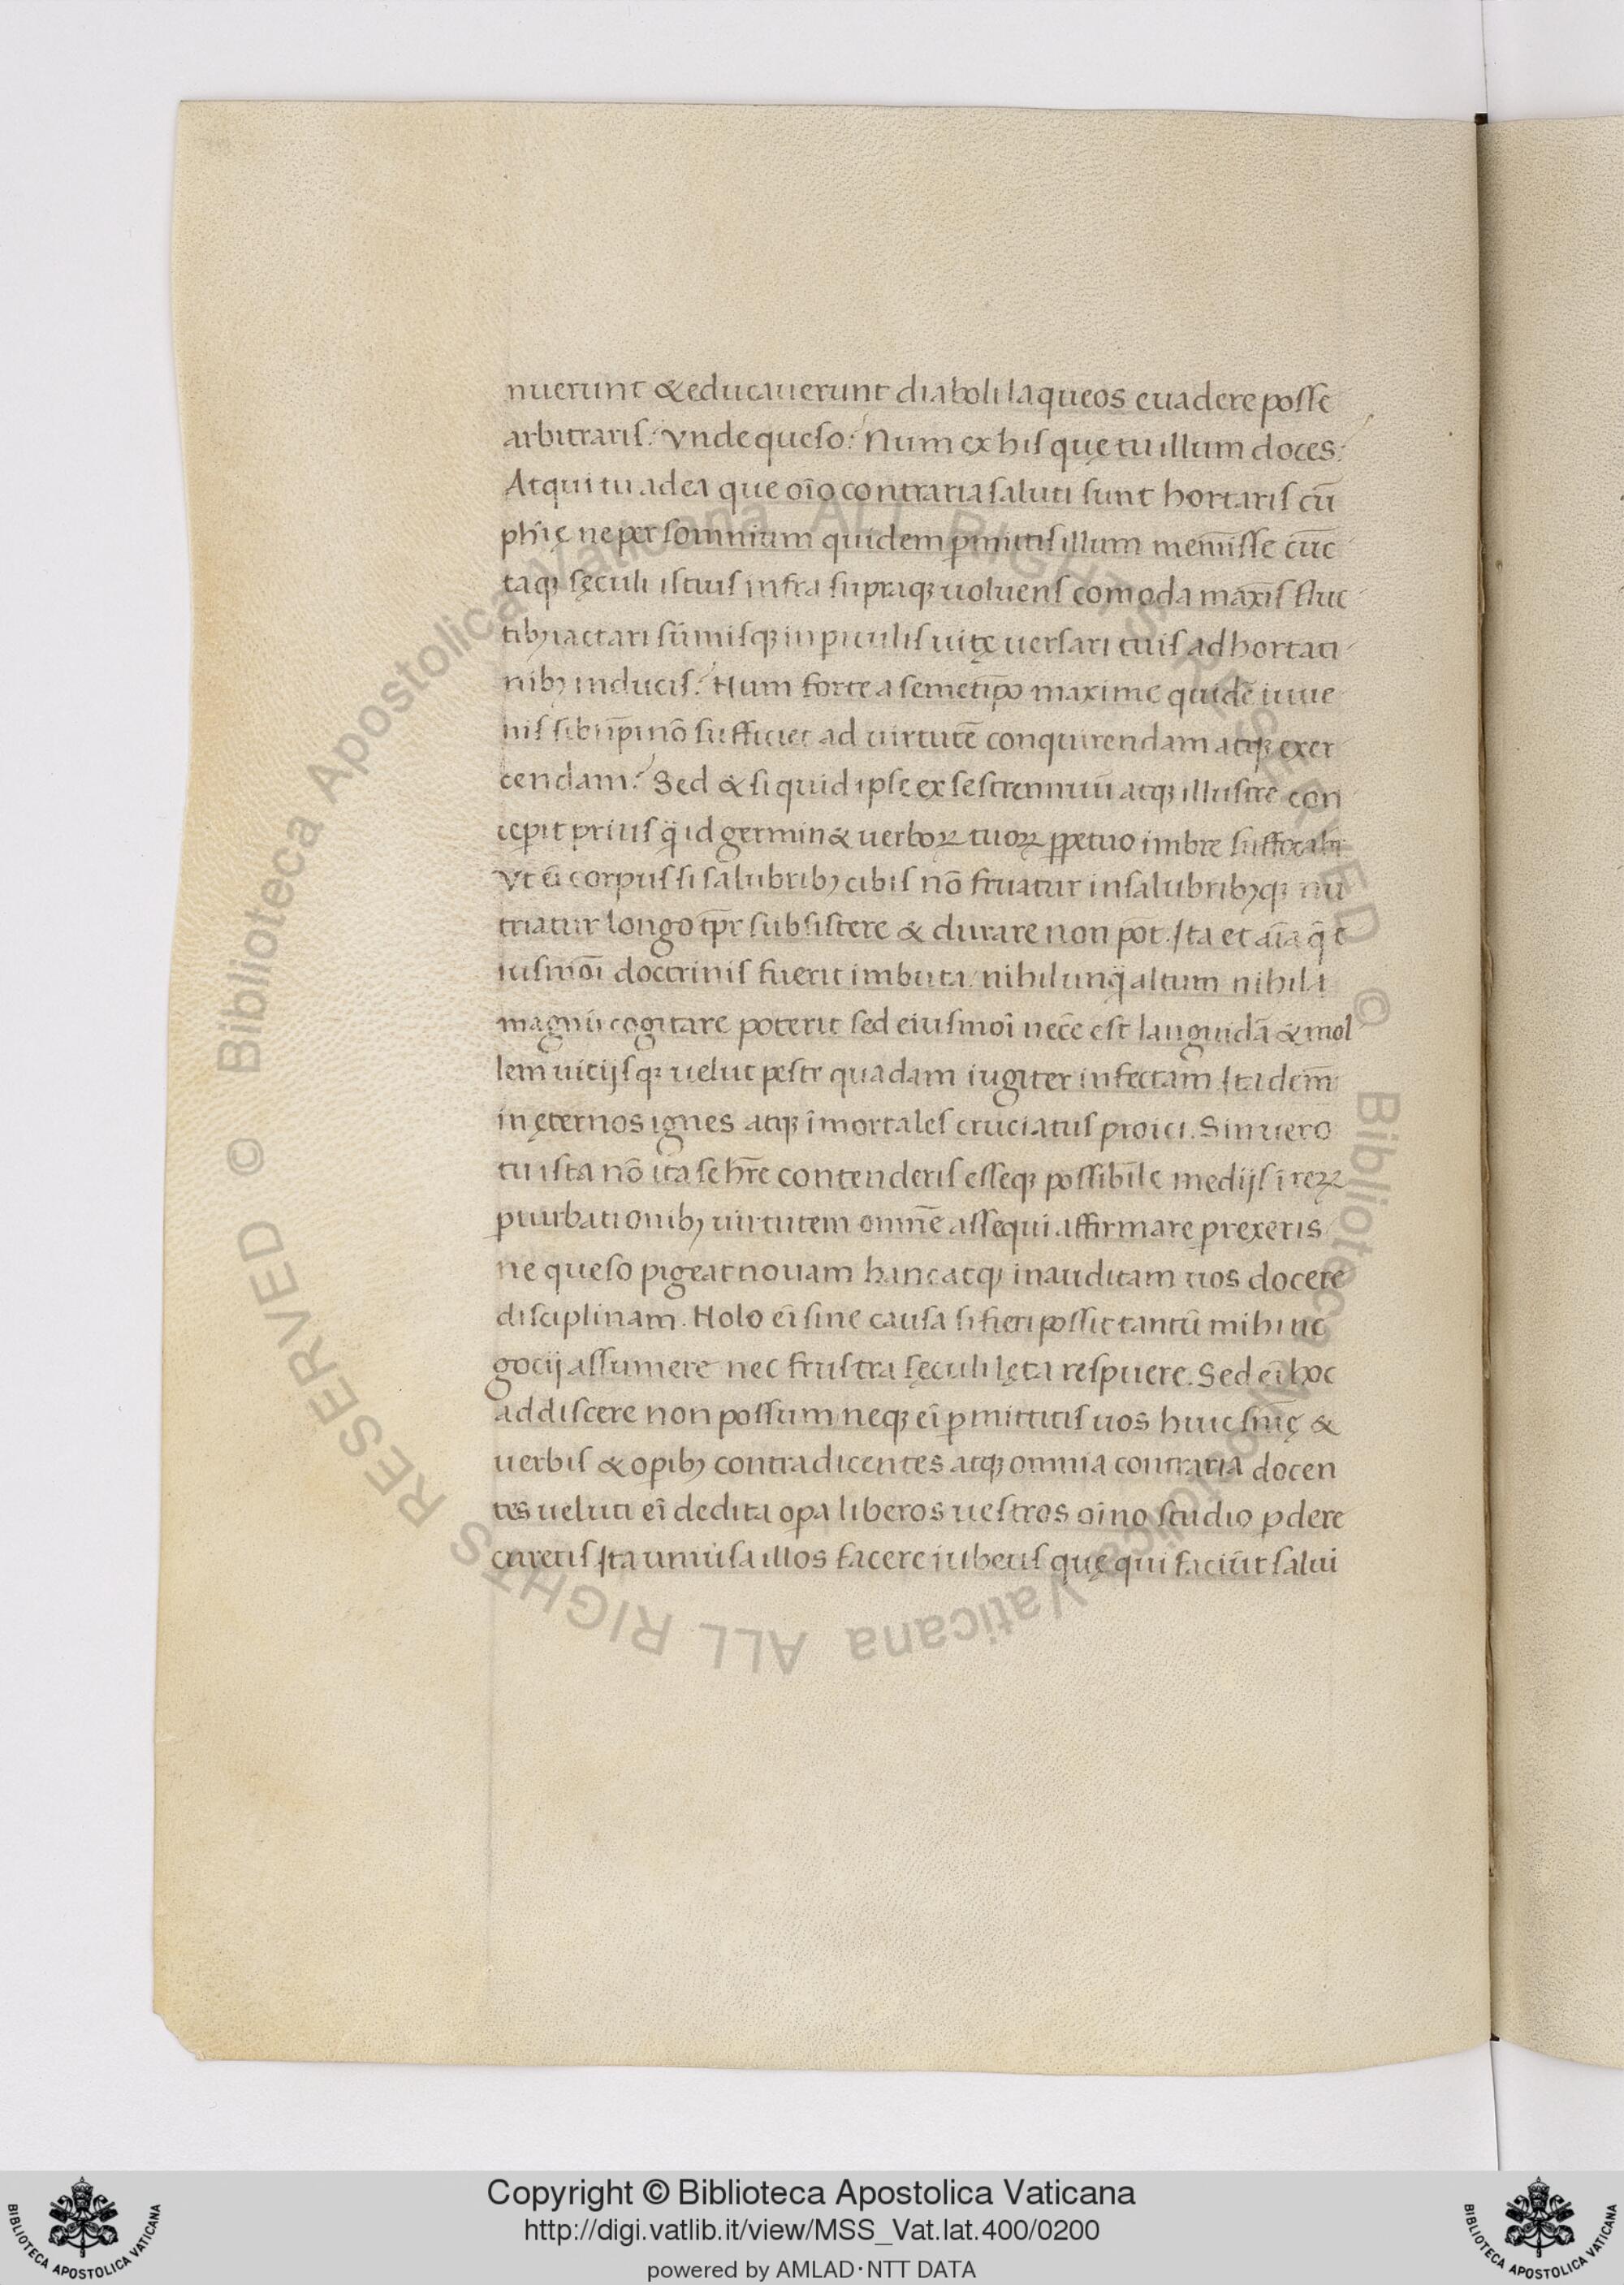 nuerunt & educauerunt diaboli laqueos euadere posse
arbitraris? Vnde queso? Num ex his quę tu illum doces?
Atqui tu ad ea que oīo contraria saluti sunt hortaris cū
phię ne per somnium quidem pmittis illum meminisse cūc
taqȝ sęculi istius infra supraqȝ uoluens comoda maxīs fluc
tibȝ iactari sūmisqȝ in piculis uitę uersari tuis adhortati
nibȝ inducis? Num forte a semetip̄o maxime quidē iuue
nis sibi ip̄i nō sufficiet ad uirtutē conquirendam atqȝ exer
cendam? Sed & si quid ipse ex se strennuū atqȝ illustre con
cepit prius q̄ id germin& uerboꝝ tuoꝝ ppetuo imbre suffocabi
Vt ēi corpus si salubribȝ cibis nō fruatur insalubribȝqȝ nu
triatur longo tp̄r subsistere & durare non pōt. Ita et aīa q̄ e
iusmōi doctrinis fuerit imbuta nihil unq̄ altum nihil
magnū cogitare poterit sed eiusmōi necē est languidā & mol
lem uicijsqȝ uelut peste quadam iugiter infectam Ita dem̄
in ęternos ignes atqȝ īmortales cruciatus proici. Sin uero
tu ista nō ita se hr̄e contenderis esseqȝ possibile medijs ī reꝝ
pturbationibȝ uirtutem omnē assequi affirmare prexeris
ne queso pigeat nouam hanc atqȝ inauditam uos docere
disciplinam. Nolo ēi sine causa si fieri possit tantū mihi ne
gocij assumere nec frustra sęculi lęta respuere. Sed eī hoc
addiscere non possum neqȝ eī pmittitis uos huic snīę &
uerbis & opibȝ contradicentes atqȝ omnia contraria docen
tes ueluti eī dedita opa liberos uestros oīno studio pdere
curetis Ita uniūsa illos facere iubetis quę qui faciūt salui
Copyright © Biblioteca Apostolica Vaticana
http://digi.vatlib.it/view/MSS_Vat.lat.400/0200
powered by AMLAD·NTT DATA